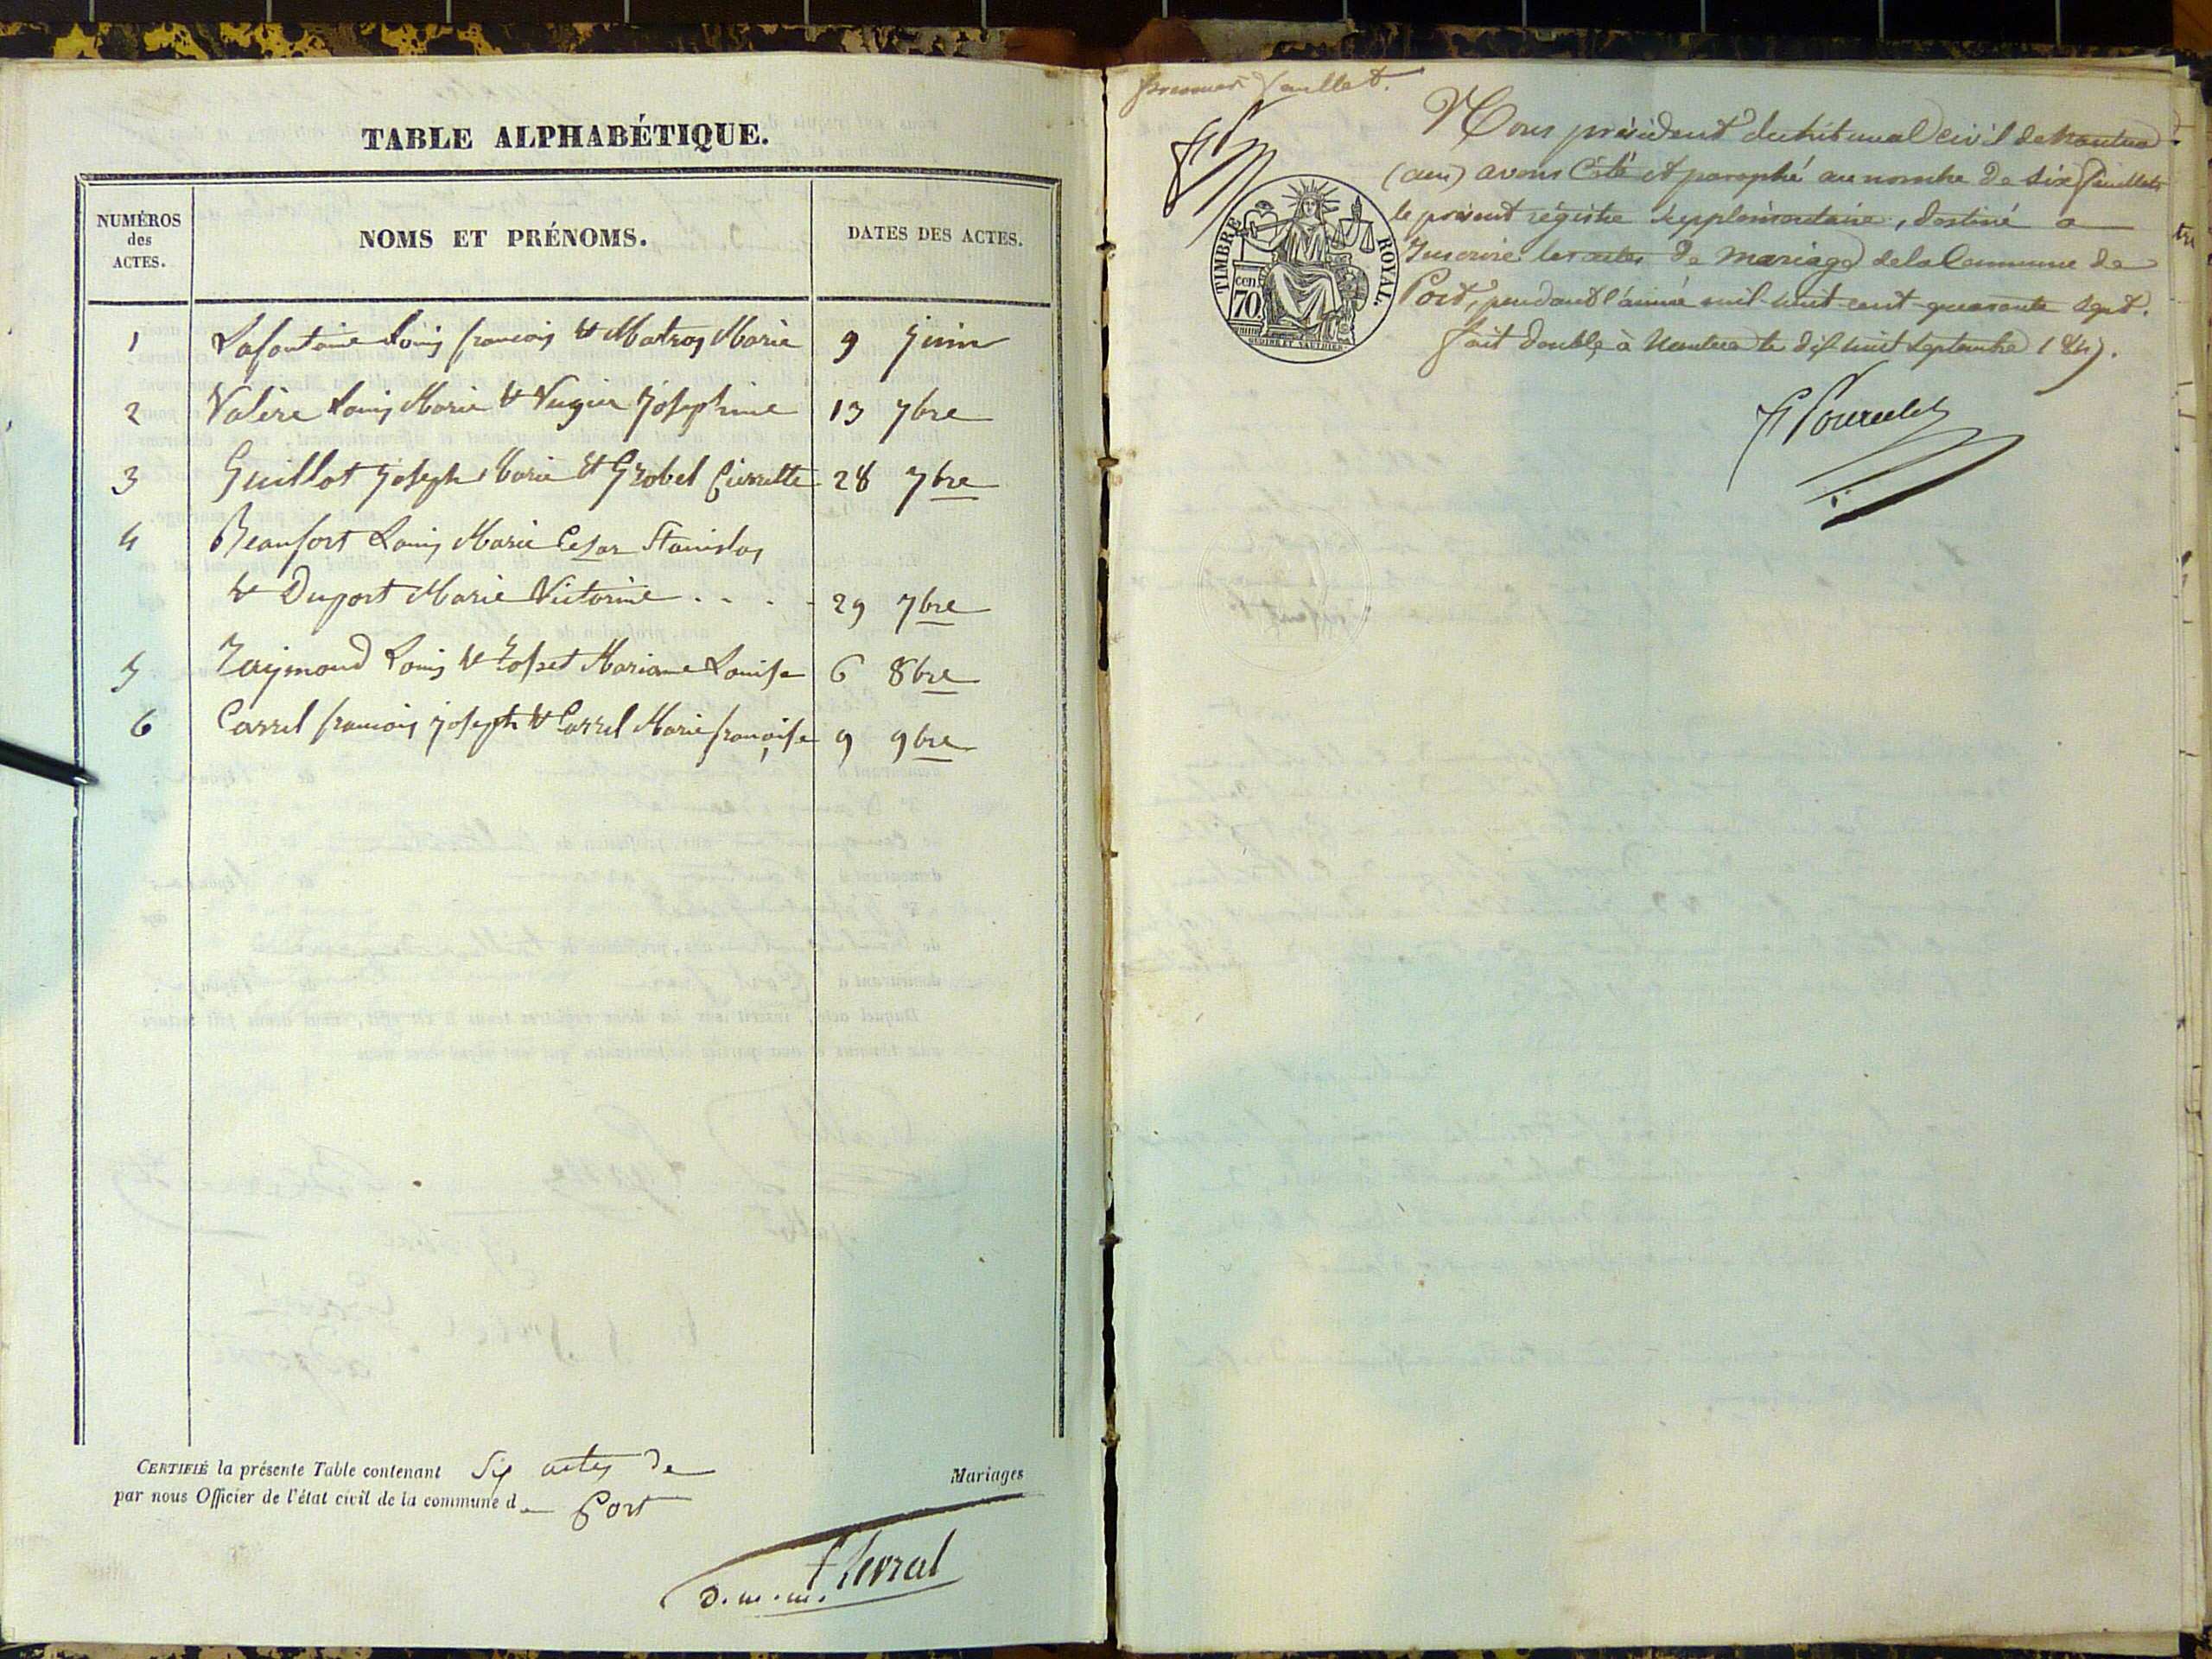 TABLE ALPHABÉTIQUE.
NUMÉROS
des
ACTES.
NOMS ET PRÉNOMS.
DATES DES ACTES.
1 Lafontaine Louis françois et Matras Marie 9 Juin
2 Valère Louis Marie et Joséphine 13 7bre
3 Guillot Joseph Marie et Grobel Pierrette 28 7bre
4 Beaufort Louis Marie Cesar Stanislas
et Duport Marie Victorine . . . . 29 7bre
5 Raymond Louis et Mariane Louise 6 8bre
6 Carrel françois Joseph et Carrel Marie françoise 9 9bre
CERTIFIÉ la présente Table contenant Six actes de Mariages
par nous Officier de l'état civil de la commune de Port
premier feuillet.
TIMBRE ROYAL.
70 cen.
Nous président du tribunal civil de Nantua
(ain) avons Coté et paraphé au nombre de six feuillets
le présent régistre supplémentaire, destiné a
Inscrire les actes de mariage de la Commune de
Port, pendant l'année mil huit cent quarante sept.
fait double à Nantua le dix huit septembre 1847.